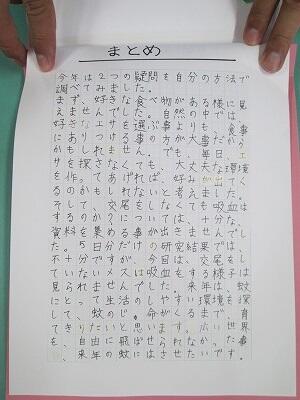 まとめ
今年は2つの疑問を自分の方法で
調べてみました。
まず、好きな食べ物がある様には見
えませんでした。自然の中では、食事
好きにエサを選ぶ事よりも、
にありつける事の方が大事だから
かもしれません。でも、毎日、エ
サを探さなくても、大丈夫な環境
を作ってあげれば、好みが出てく
るのかもしれないと考えました。
そして、交尾をしなくても吸血は
するのか？については、十分な
資料を集める事が出きませんでし
た。5日分だけの研究結果では、
不十分ですが、今回は、交尾をし
ていないメスは吸血をする様子は
見られませんでした。来年は、蚊
にとって生活のしやすい環境を探
して、蚊の
命がくるまで、育
てきりたいと思います。広い世界
を、自由に飛ばせられなかった事
を、来年の蚊にはさせたいです。